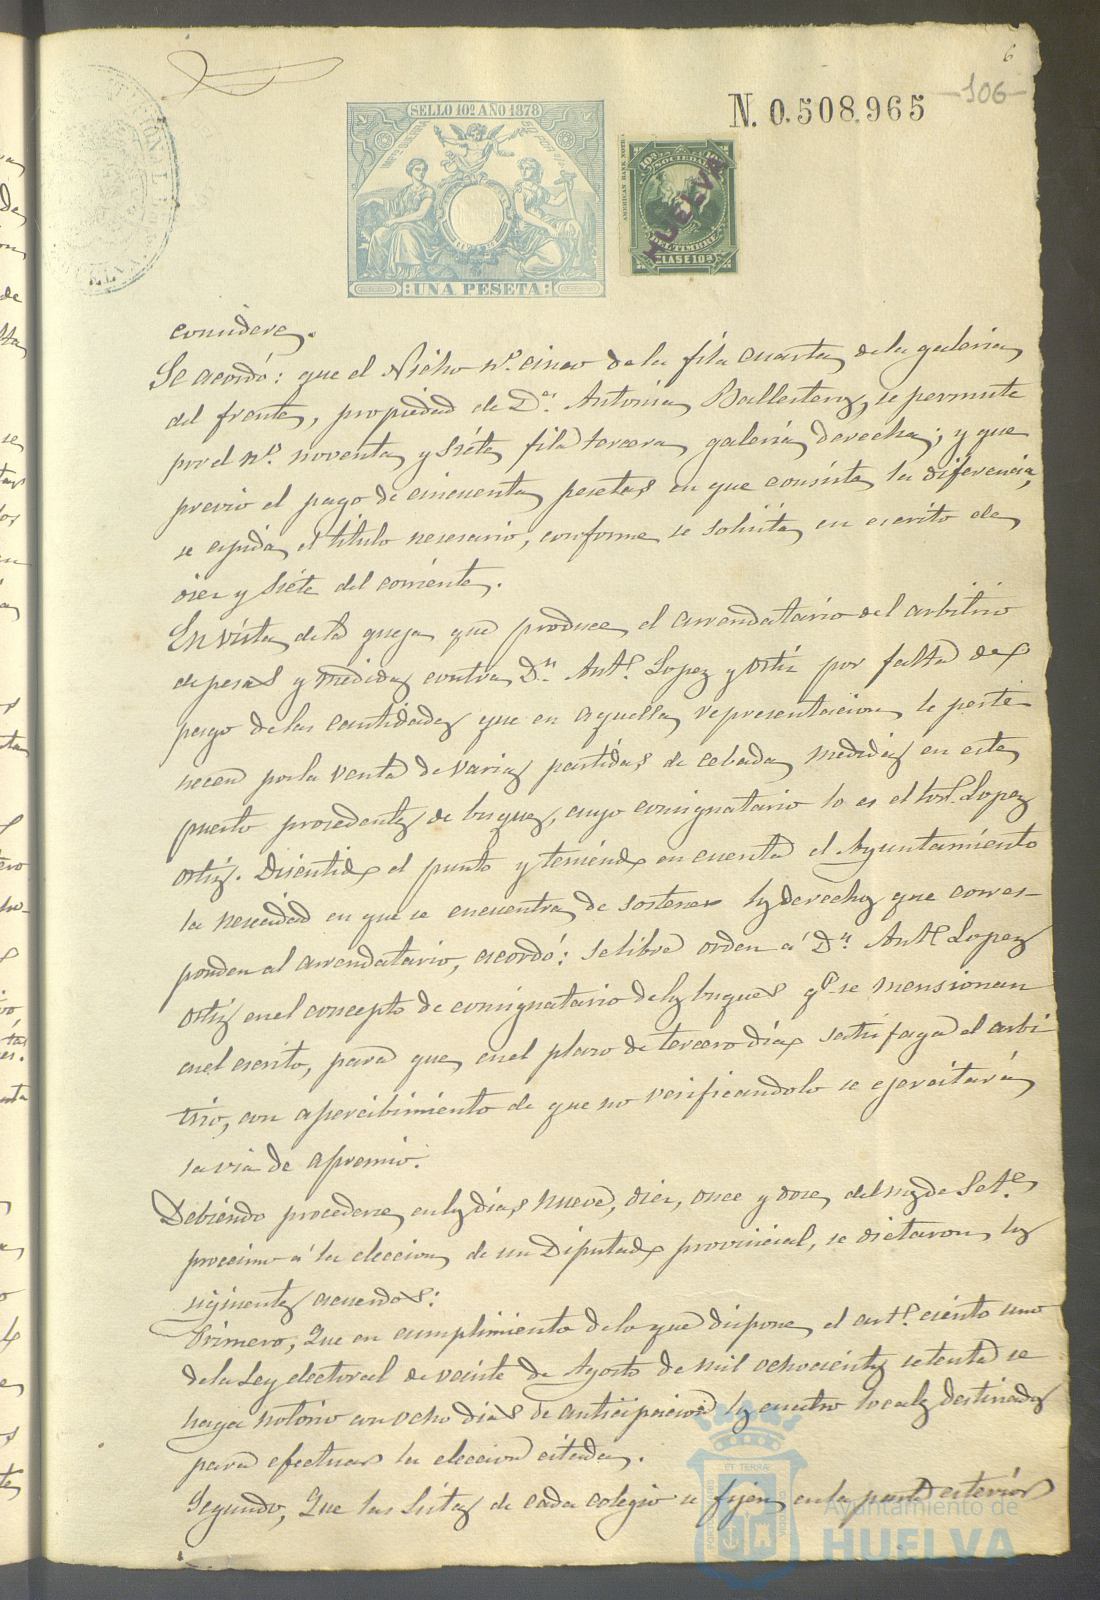 6
-106-
N. 0.508.965
SELLO 10º AÑO 1878
UNA PESETA
AMERICAN BANK NOTE
10ª 10ª
SOCIEDAD
HUELVA
DEL TIMBRE
CLASE 10ª
considere.
Se acordó: que el Nicho nº. cinco de la fila cuarta de la galeria
del frente, propiedad de Dª. Antonia Ballesteros, se permute
por el nº. noventa y siete fila tercera galeria derecha; y que
previo el pago de cincuenta pesetas en que consiste la diferencia,
se espida el titulo necesario, conforme se solicita en escrito de
diez y siete del corriente.
En vista de la queja que produce el arrendatario del arbitrio
de pesas y medidas contra Dn. Antº. Lopez y Ortiz por falta de
pago de las cantidades que en aquella representacion le perte
necen por la venta de varias partidas de cebada medidas en este
puerto procedentes de buques, cuyo consignatario lo es el Lopez
Ortiz. Discutido el punto y teniendo en cuenta el Ayuntamiento
la necesidad en que se encuentra de sostener los derechos que corres-
ponden al arrendatario, acordó: se libre orden á Dn. Antº Lopez
Ortiz en el concepto de consignatario de los buques qe. se mensionan
en el escrito, para que en el plazo de tercero dia satisfaga el arbi
trio, con apercibimiento de que no verificandolo se ejercitará
la via de apremio.
Debiendo procederse en los dias nueve, diez, once y doce del mes de Setº.
procsimo á la eleccion de un Diputado provincial, se dictaron los
siguientes acuerdos:
Primero, Que en cumplimiento de lo que dispone el artº. ciento uno
de la Ley electoral de veinte de Agosto de mil ochocientos setenta se
haga notorio con ocho dias de anticipacion los cuatro locales destinados
para efectuar la eleccion citada.
Segundo, Que las listas de cada colegio se fijen en la parte esterior
Ayuntamiento de
HUELVA